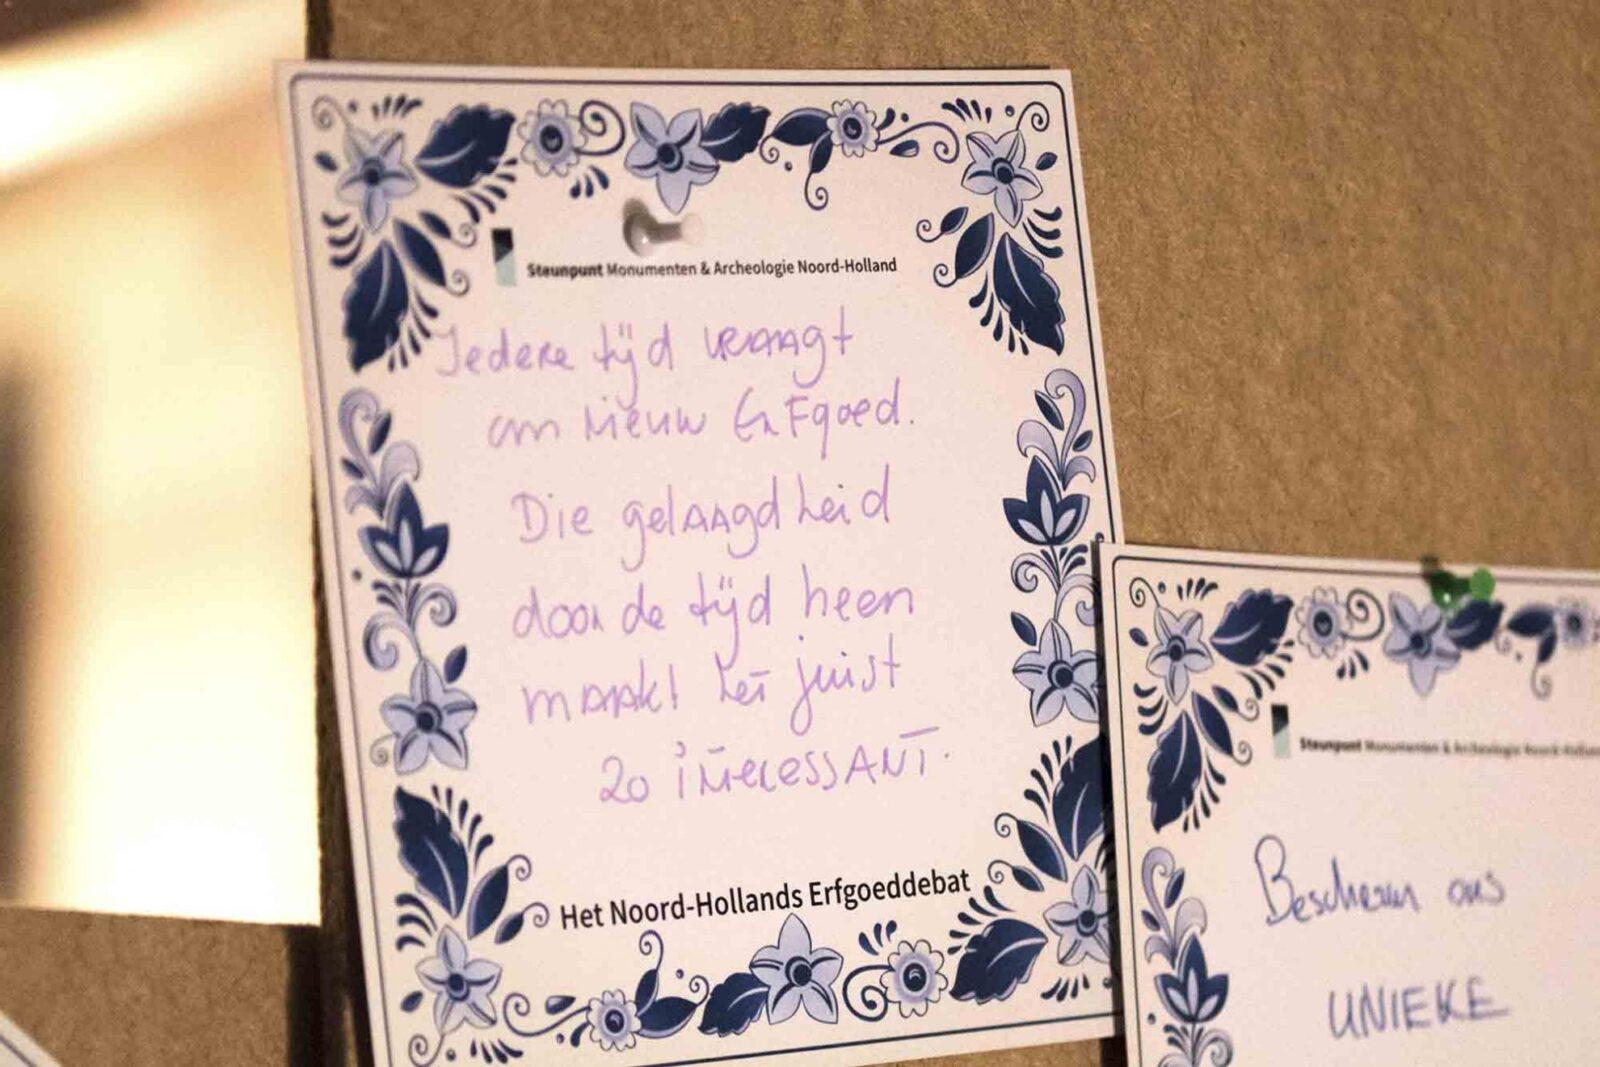 Steunpunt Monumenten & Archeologie Noord-Holland
Iedere tijd vraagt
om nieuw Erfgoed.
Die gelaagdheid
door de tijd heen
maakt het juist
zo interessant.
Het Noord-Hollands Erfgoeddebat
Steunpunt Monumenten & Archeologie Noord-Holland
Bescherm ons
UNIEKE